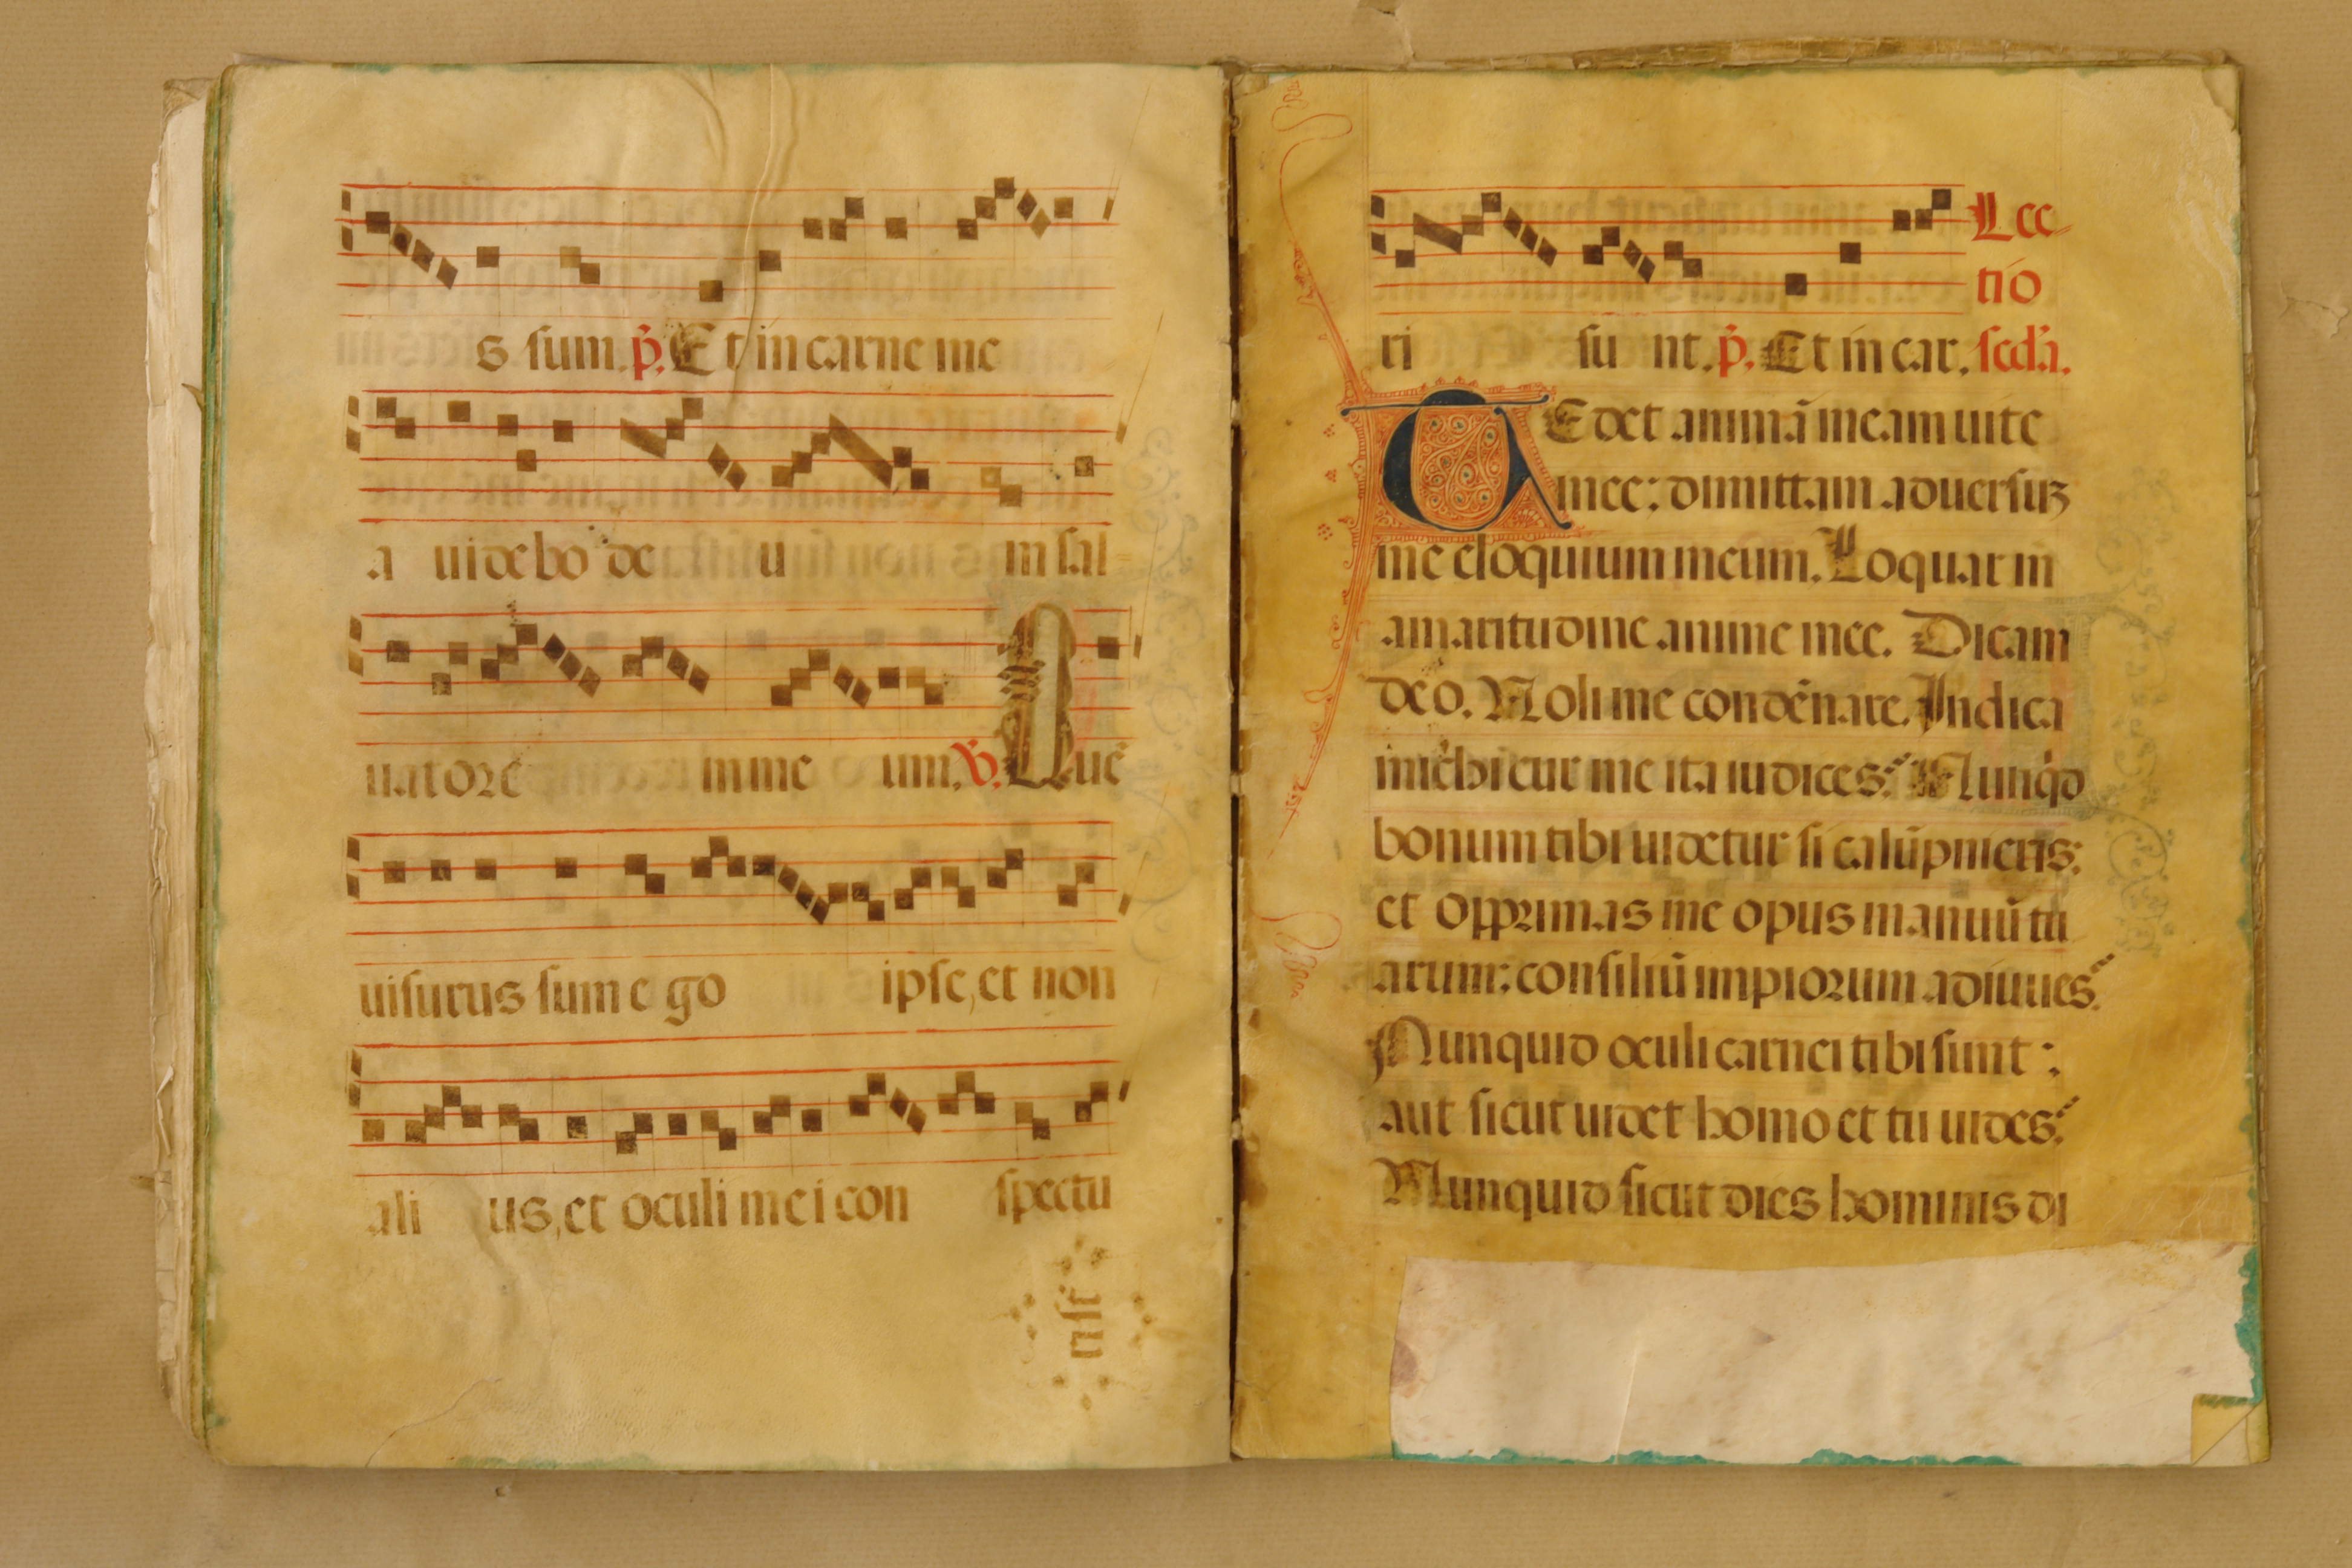 s sum. p̄. Et in carne me
a uidebo de u m sal
uatore m me um. V̄. Que
uisurus sum ego ipse, et non
ali us, et oculi mei con spectu
Lec
tio
ri su nt. p̄. Et in car. scd̄a.
TEdet animā meam uite
mee: dimittam aduersuȝ
me eloquium meum. Loquar in
amaritudine anime mee. Dicam
deo. Noli me condēnare. Indica
michi cur me ita iudices. Nunqd̄
bonum tibi uidetur si calūpnieris:
et opprimas me opus manuū tu
arum: consiliū impiorum adiuues.
Nunquid oculi carnei tibi sunt:
aut sicut uidet homo et tu uides.
Nunquid sicut dies hominis di